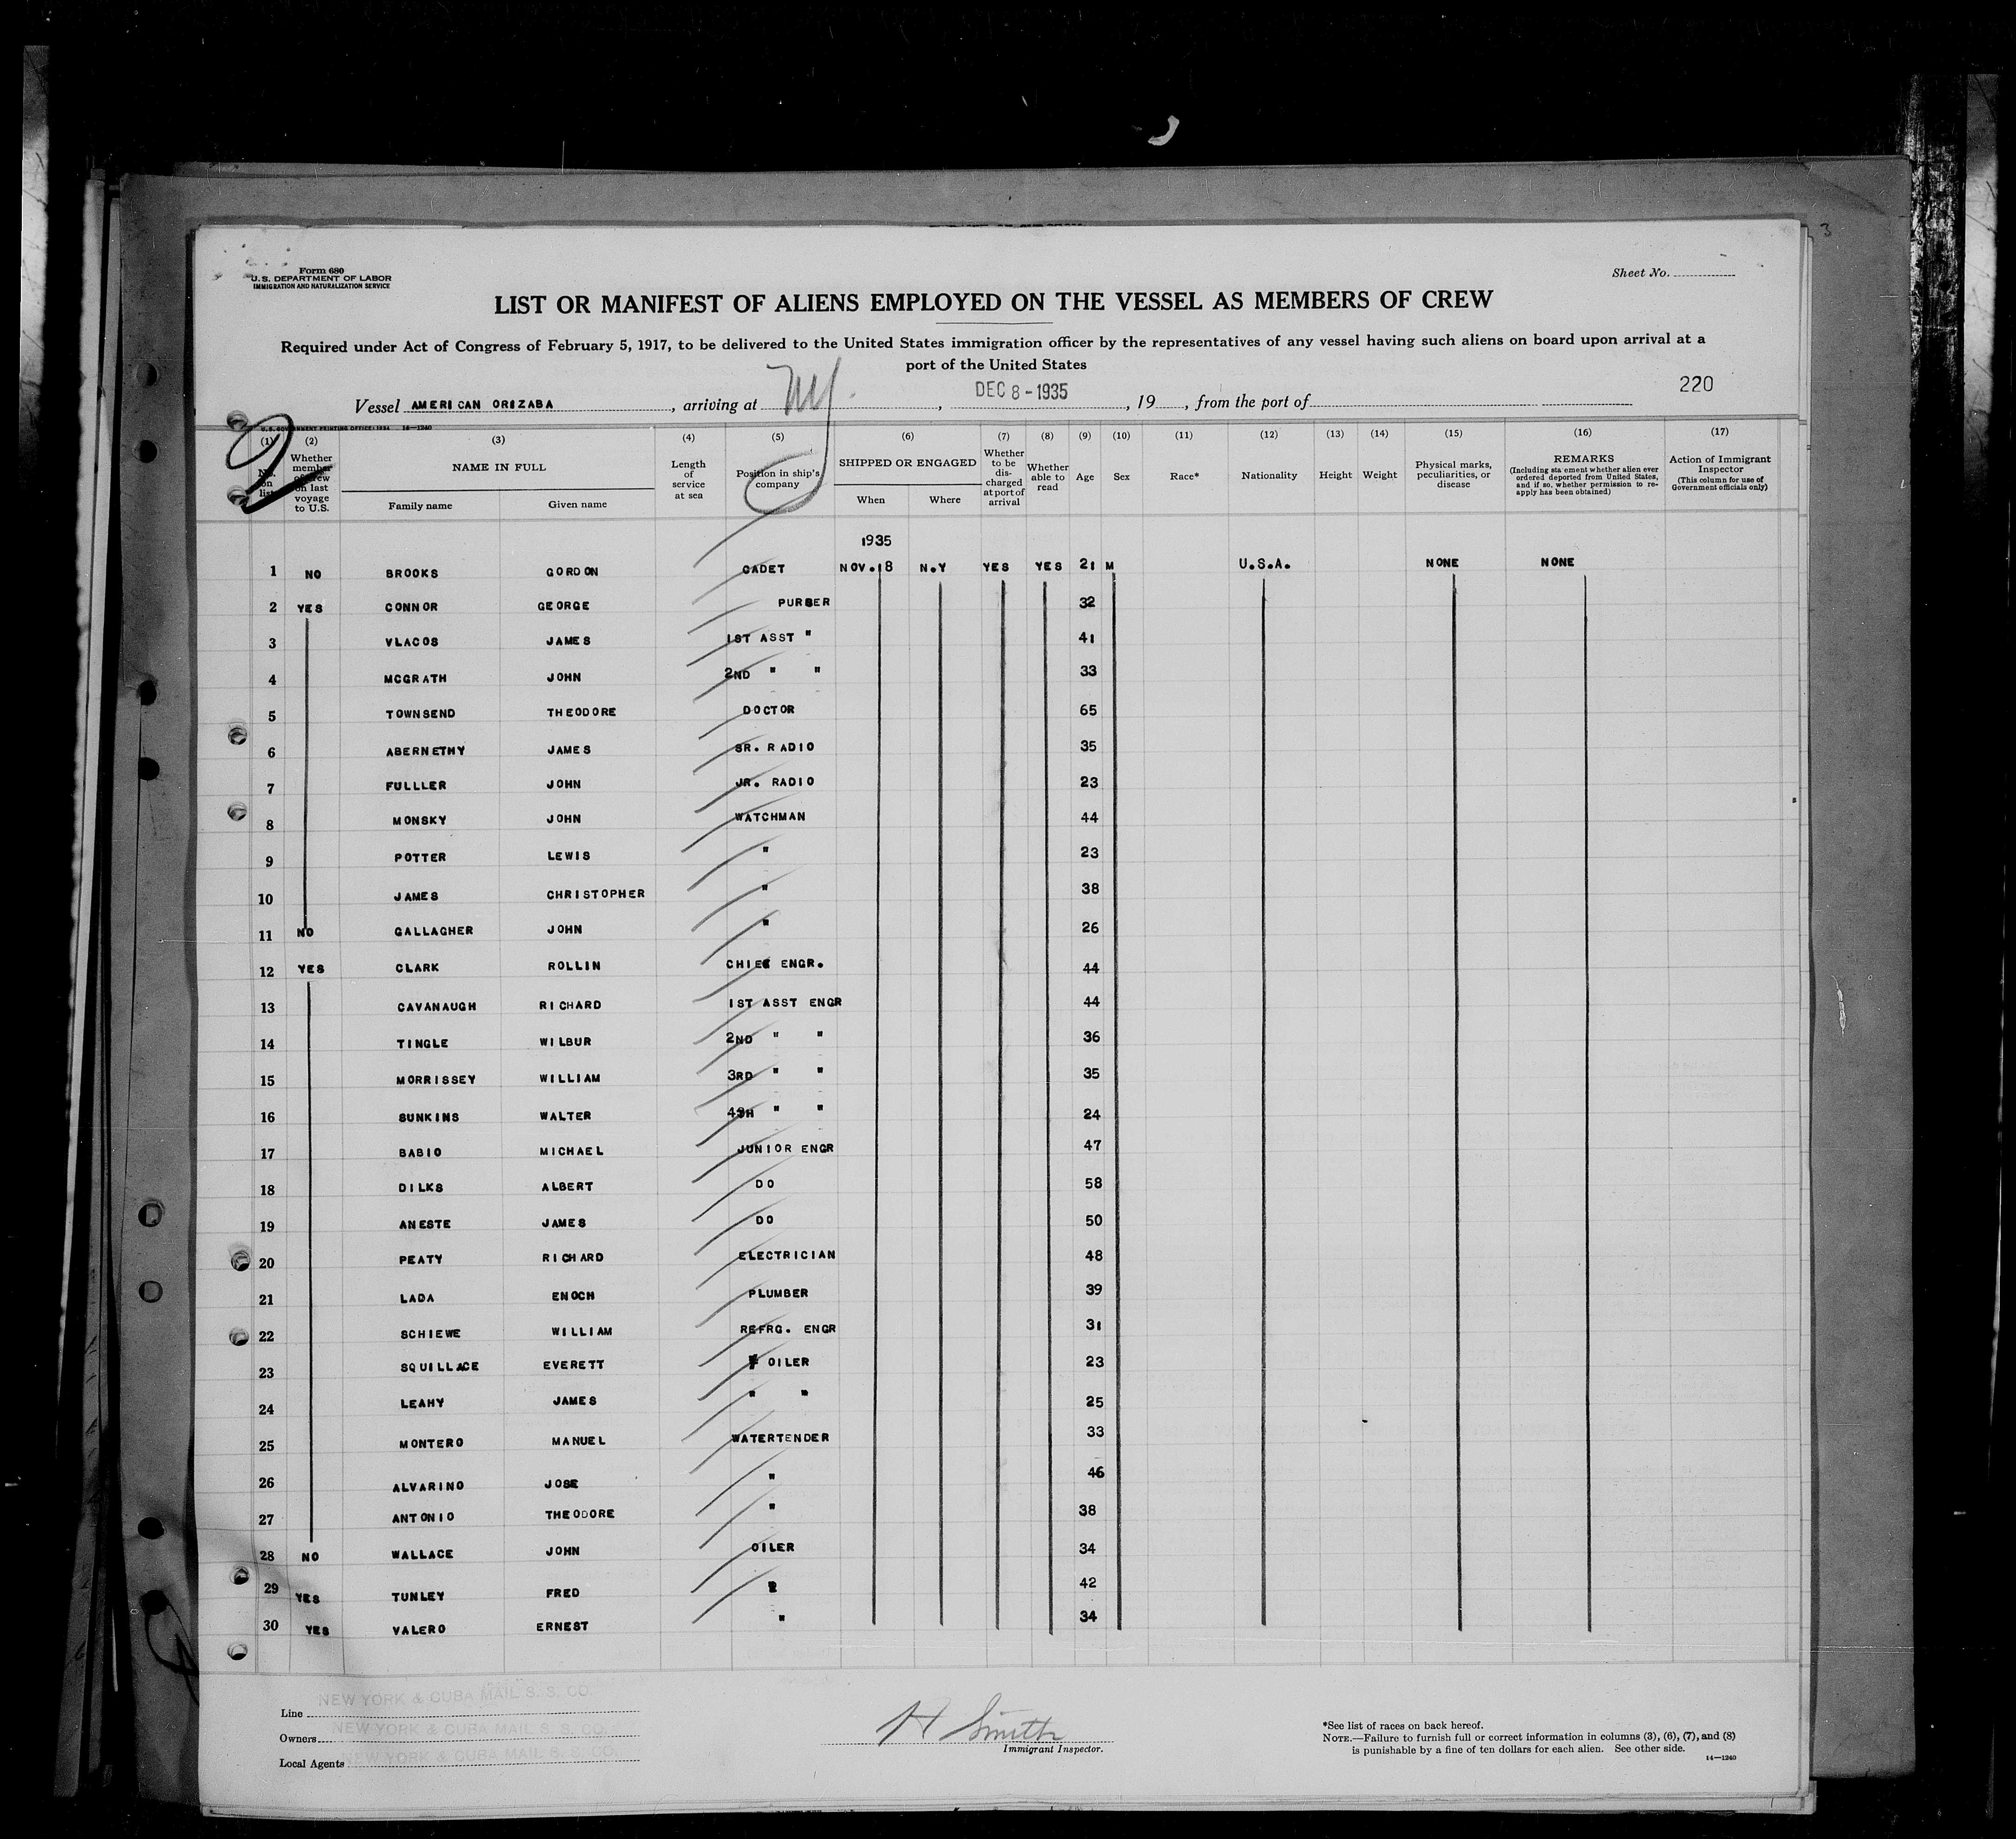 Form 680
U.S. DEPARTMENT OF LABOR
IMMIGRATION AND NATURALIZATION SERVICE
Sheet No.
LIST OR MANIFEST OF ALIENS EMPLOYED ON THE VESSEL AS MEMBERS OF CREW
Required under Act of Congress of February 5, 1917, to be delivered to the United States immigration officer by the representatives of any vessel having such aliens on board upon arrival at a
port of the United States
220
Vessel AMERICAN ORIZABA, arriving at NY, DEC 8-1935, 19, from the port of
U.S. GOVERNMENT PRINTING OFFICE: 1934 14—1240
(1) (2) (3) (4) (5) (6) (7) (8) (9) (10) (11) (12) (13) (14) (15) (16) (17)
No. on list
Whether member of crew on last voyage to U.S.
NAME IN FULL
Family name
Given name
Length of service at sea
Position in ship's company
SHIPPED OR ENGAGED
When
Where
Whether to be discharged at port of arrival
Whether able to read
Age
Sex
Race*
Nationality
Height
Weight
Physical marks, peculiarities, or disease
REMARKS
(Including statement whether alien ever ordered deported from United States, and if so, whether permission to re-apply has been obtained)
Action of Immigrant Inspector
(This column for use of Government officials only)
1935
1 NO BROOKS GORDON CADET NOV. 18 N.Y YES YES 21 M U.S.A. NONE NONE
2 YES CONNOR GEORGE PURSER 32
3 VLACOS JAMES 1ST ASST " 41
4 MCGRATH JOHN 2ND " " 33
5 TOWNSEND THEODORE DOCTOR 65
6 ABERNETHY JAMES SR. RADIO 35
7 FULLLER JOHN JR. RADIO 23
8 MONSKY JOHN WATCHMAN 44
9 POTTER LEWIS " 23
10 JAMES CHRISTOPHER " 38
11 NO GALLAGHER JOHN " 26
12 YES CLARK ROLLIN CHIEF ENGR. 44
13 CAVANAUGH RICHARD 1ST ASST ENGR 44
14 TINGLE WILBUR 2ND " " 36
15 MORRISSEY WILLIAM 3RD " " 35
16 SUNKINS WALTER " " 24
17 BABIO MICHAEL JUNIOR ENGR 47
18 DILKS ALBERT DO 58
19 ANESTE JAMES DO 50
20 PEATY RICHARD ELECTRICIAN 48
21 LADA ENOCH PLUMBER 39
22 SCHIEWE WILLIAM REFRG. ENGR 31
23 SQUILLACE EVERETT OILER 23
24 LEAHY JAMES " " 25
25 MONTERO MANUEL WATERTENDER 33
26 ALVARINO JOSE " 46
27 ANTONIO THEODORE " 38
28 NO WALLACE JOHN OILER 34
29 YES TUNLEY FRED " 42
30 YES VALERO ERNEST " 34
Line NEW YORK & CUBA MAIL S. S. CO.
Owners NEW YORK & CUBA MAIL S. S. CO.
Local Agents NEW YORK & CUBA MAIL S. S. CO.
H Smith
Immigrant Inspector.
*See list of races on back hereof.
NOTE.—Failure to furnish full or correct information in columns (3), (6), (7), and (8)
is punishable by a fine of ten dollars for each alien. See other side.
14—1240